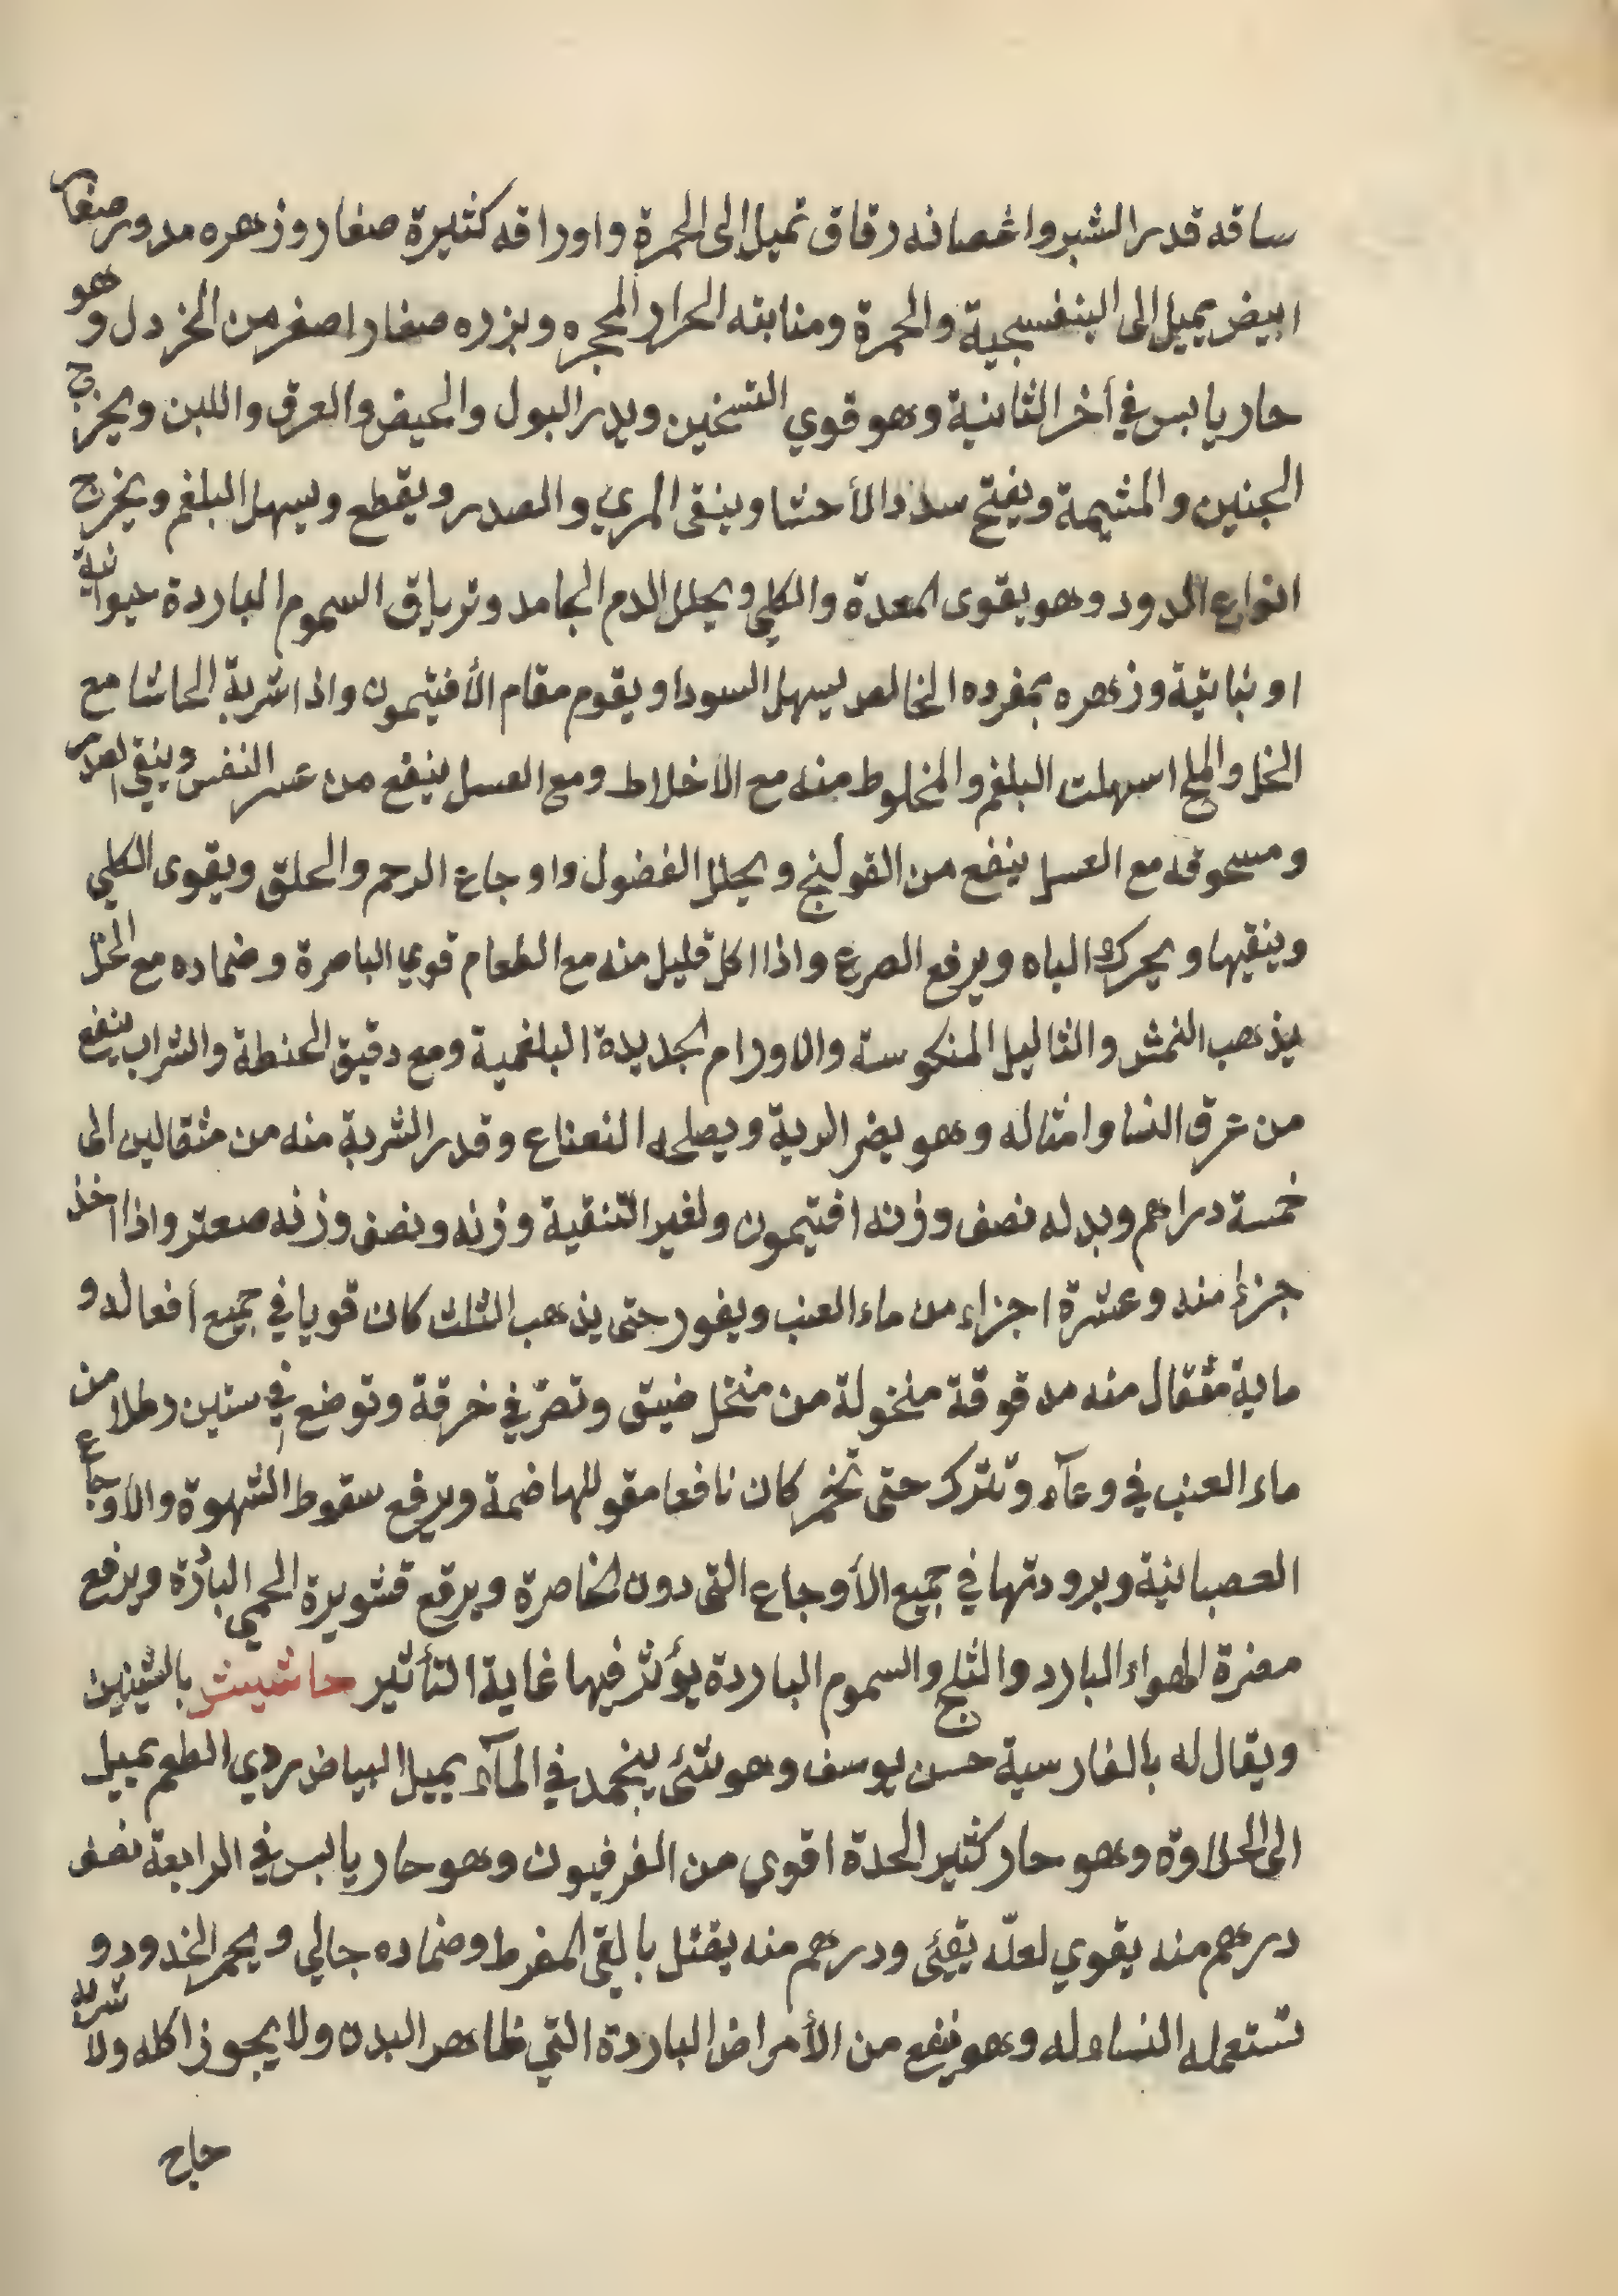 ساقه قدر الشبر واغصانه رقاق تميل الى الحمرة واوراقه كثيرة صغار وزهره مدور صغار
ابيض يميل الى البنفسجية والحمرة ومنابته الحرار المحجره وبزره صغار اصغر من الخردل وهو
حار يابس في أخر الثانية وهو قوي التسخين ويدر البول والحيض والعرق واللبن ويخرج
الجنين والمشيمة ويفتح سدد الأحشا وينقى المري والصدر ويقطع ويسهل البلغم ويخرج
انواع الدود وهو يقوى المعدة والكلي ويحلل الدم الجامد وترياق السموم الباردة حيوانية
او نباتية وزهره بمفرده الخالص يسهل السودا ويقوم مقام الأفتيمون واذا شربة الحاشا مع
الخل والملح اسهلت البلغم والمخلوط منه مع الاخلاط ومع العسل ينفع من عسر النفس وينقي الصدر
ومسحوقه مع العسل ينفع من القولنج ويحلل الفضول واوجاع الرحم والحلق ويقوى الكلي
وينقيها ويحرك الباه ويرفع الصرع واذا اكل قليل منه مع الطعام قوي الباصرة وضماده مع الخل
يذهب النمش والثاليل المنكوسة والاورام الجديدة البلغمية ومع دقيق الحنطة والشراب ينفع
من عرق النسا وامثاله وهو يضر الرية ويصلحه النعناع وقدر الشربة منه من مثقالين الى
خمسة دراهم وبدله نصف وزنه افتيمون ولغير التنقية وزنه ونصف وزنه صعتر واذا اخذ
جزأ منه وعشرة اجزاء من ماء العنب ويفور حتى يذهب الثلث كان قويا في جميع أفعاله و
ماية مثقال منه مدقوقة منخولة من منخل ضيق وتصرّ في خرقة وتوضع في ستين رطلا من
ماء العنب في وعآء وتترك حتى تخمر كان نافعا مقو للهاضمة ويرفع سقوط الشهوة والأوجاع
العصبانية وبرودتها في جميع الأوجاع التى دون الخاصرة ويرفع قشويرة الحمي الباردة ويرفع
مضرة الهواء البارد والثلج والسموم الباردة يؤثر فيها غاية التأثير حاشيش بالشينين
ويقال له بالفارسية حسن يوسف وهو شئ ينجمد في المآء يميل البياض ردي الطعم يميل
الى الحلاوة وهو حار كثير الحدة اقوي من الفرفيون وهو حار يابس في الرابعة نصف
درهم منه يقوي لعلّه يقيئ ودرهم منه يقتل بالقى المفرط وضماده جالي ويحمر الخدود و
تستعمله النساء له وهو ينفع من الأمراض الباردة التي ظاهر البدن ولا يجوز اكله ولا شربه
حاج